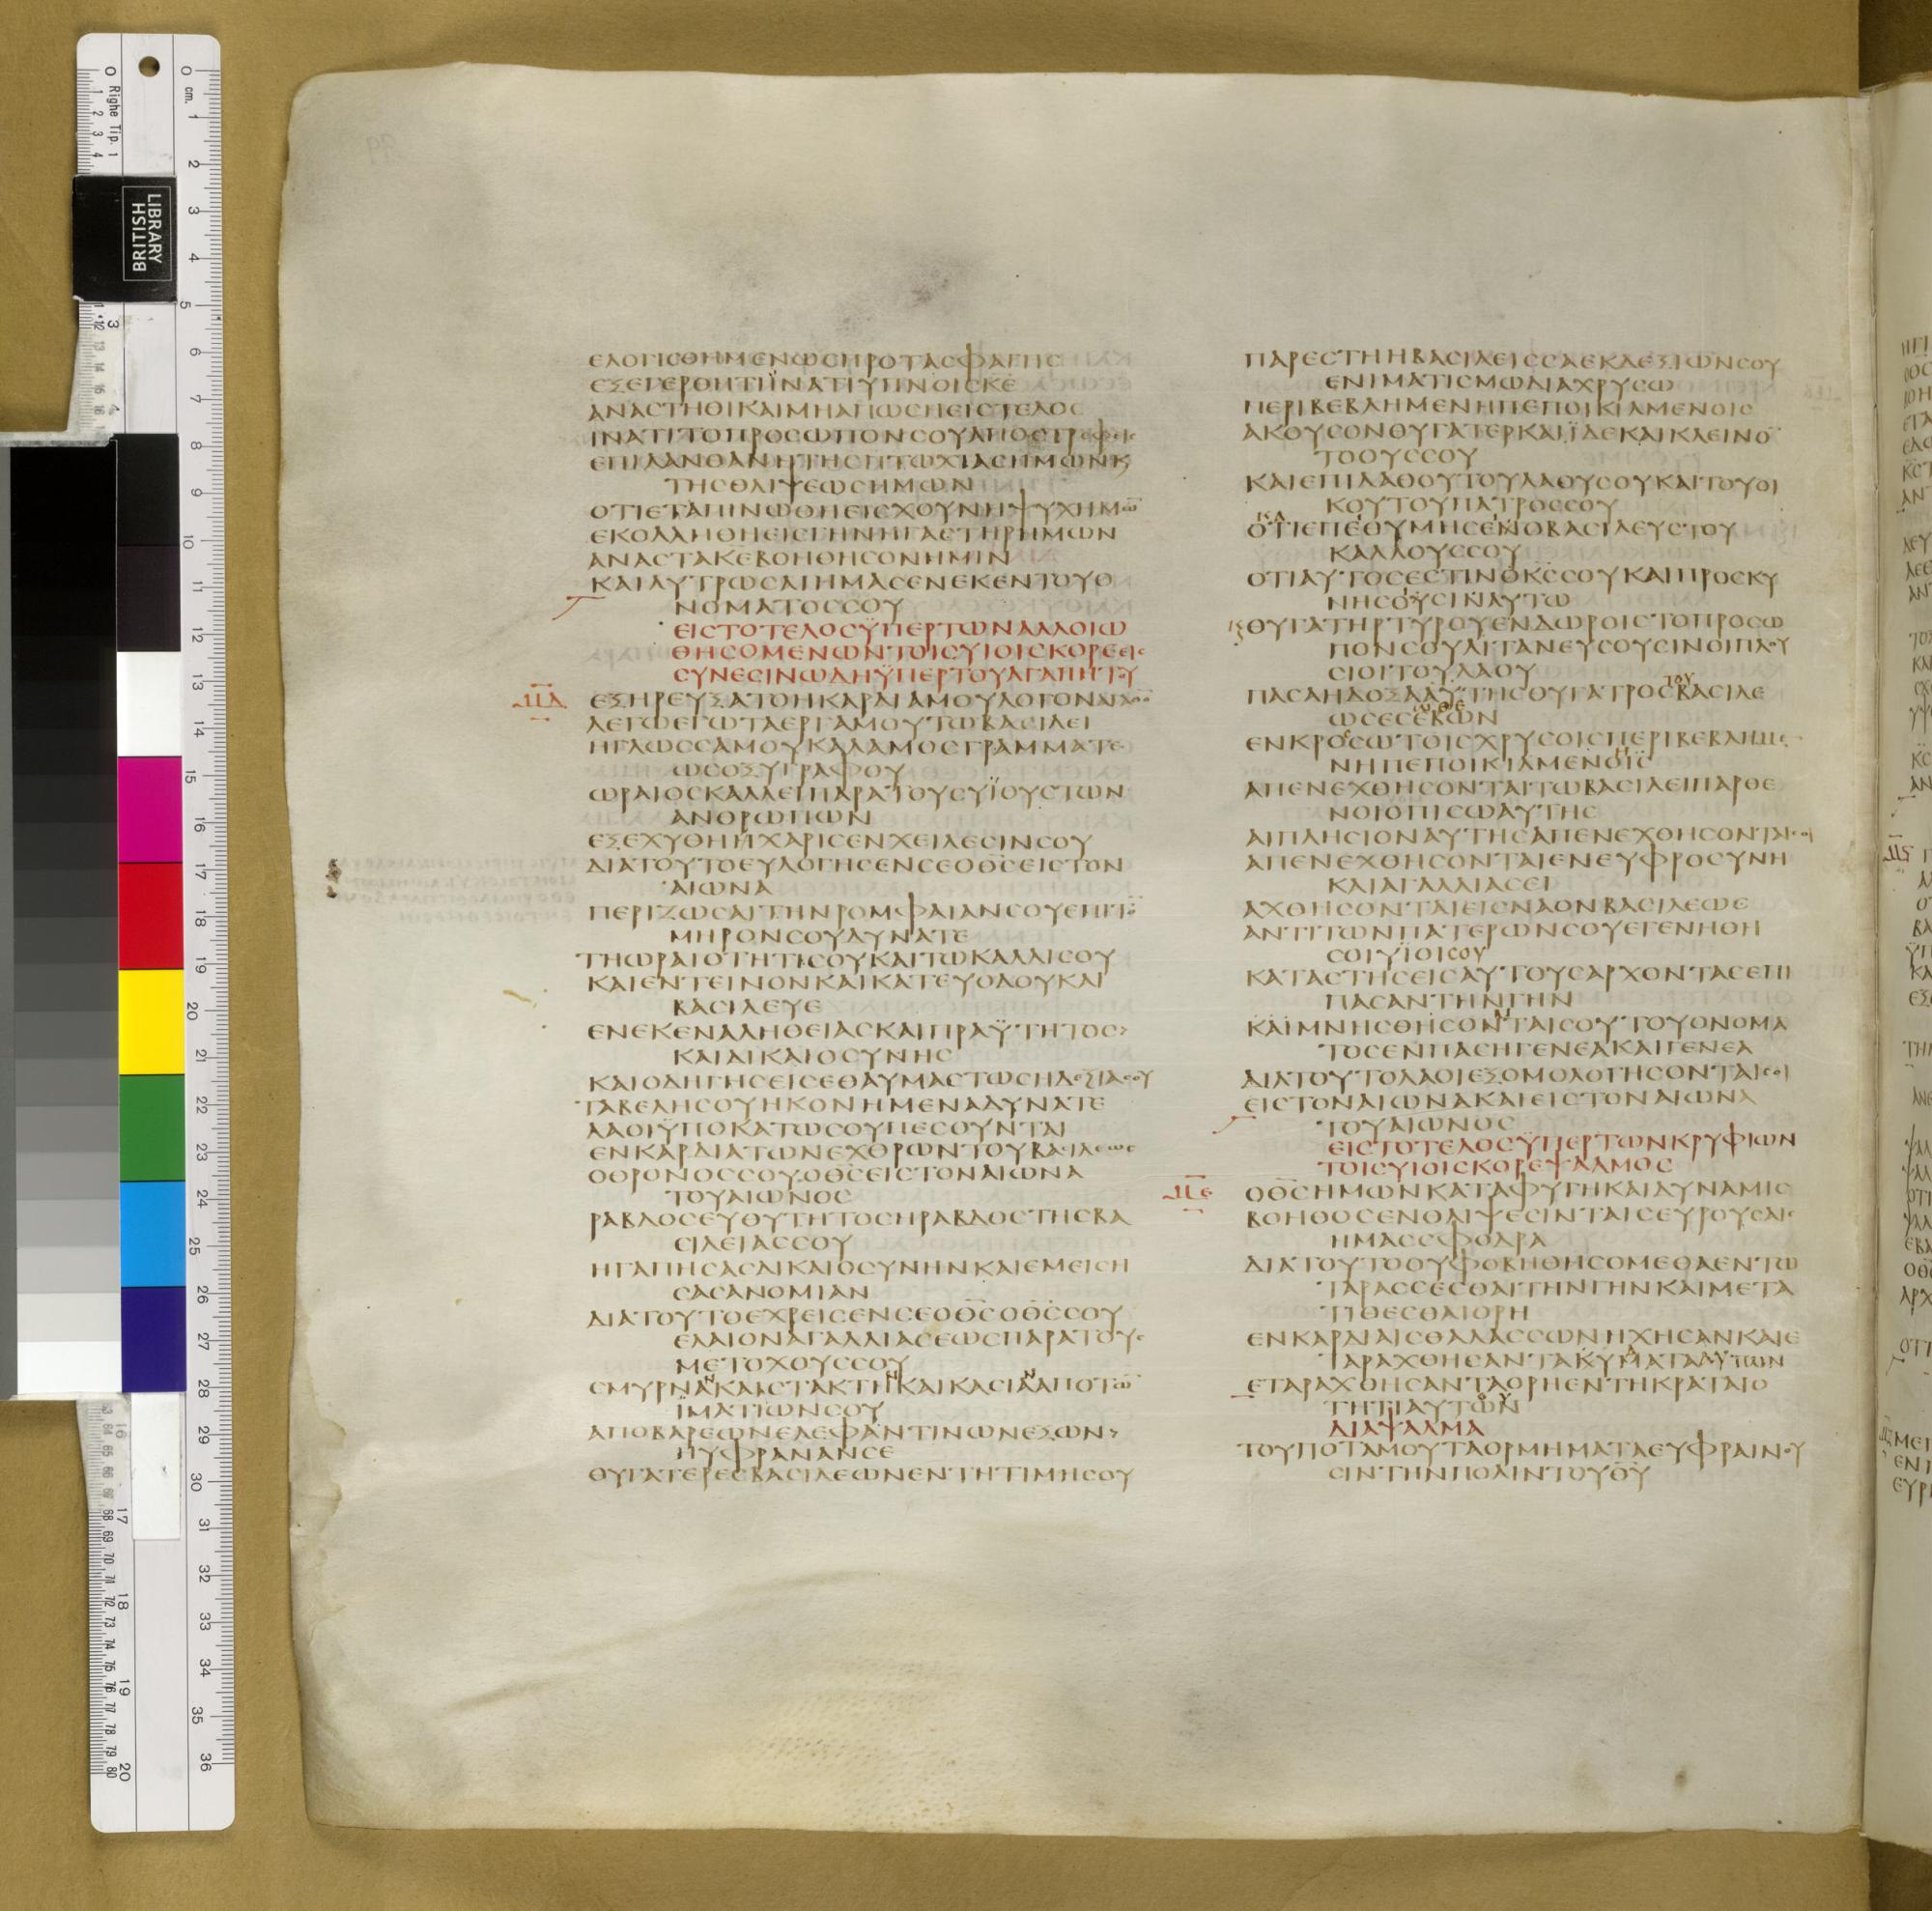 ΕΛΟΓΙCΘΗΜΕΝΩCΠΡΟΒΑΤΑCΦΑΓΗC
ΕΞΕΓΕΡΘΗΤΙΪΝΑΤΙΥΠΝΟΙCΚΕ
ΑΝΑCΤΗΘΙΚΑΙΜΗΑΠΩCΗΕΙCΤΕΛΟC
ΙΝΑΤΙΤΟΠΡΟCΩΠΟΝCΟΥΑΠΟCΤΡΕΦΕΙC
ΕΠΙΛΑΝΘΑΝΗΤΗCΠΤΩΧΙΑCΗΜΩΝΚ
ΤΗCΘΛΙΨΕΩCΗΜΩΝ
ΟΤΙΕΤΑΠΙΝΩΘΗΕΙCΧΟΥΝΗΨΥΧΗΗΜΩ
ΕΚΟΛΛΗΘΗΕΙCΓΗΝΗΓΑCΤΗΡΗΜΩΝ
ΑΝΑCΤΑΚΕΒΟΗΘΗCΟΝΗΜΙΝ
ΚΑΙΛΥΤΡΩCΑΙΗΜΑCΕΝΕΚΕΝΤΟΥΟ
ΝΟΜΑΤΟCCΟΥ
ΕΙCΤΟΤΕΛΟCΫΠΕΡΤΩΝΑΛΛΟΙΩ
ΘΗCΟΜΕΝΩΝΤΟΙCΥΙΟΙCΚΟΡΕΕΙC
CΥΝΕCΙΝΩΔΗΫΠΕΡΤΟΥΑΓΑΠΗΤΟΥ
ΜΔ
ΕΞΗΡΕΥΞΑΤΟΗΚΑΡΔΙΑΜΟΥΛΟΓΟΝΑΓΑΘΟ
ΛΕΓΩΕΓΩΤΑΕΡΓΑΜΟΥΤΩΒΑCΙΛΕΙ
ΗΓΛΩCCΑΜΟΥΚΑΛΑΜΟCΓΡΑΜΜΑΤΕ
ΩCΟΞΥΓΡΑΦΟΥ
ΩΡΑΙΟCΚΑΛΛΕΙΠΑΡΑΤΟΥCΥΪΟΥCΤΩΝ
ΑΝΘΡΩΠΩΝ
ΕΞΕΧΥΘΗΗΧΑΡΙCΕΝΧΕΙΛΕCΙΝCΟΥ
ΔΙΑΤΟΥΤΟΕΥΛΟΓΗCΕΝCΕΟΘCΕΙCΤΟΝ
ΑΙΩΝΑ
ΠΕΡΙΖΩCΑΙΤΗΝΡΟΜΦΑΙΑΝCΟΥΕΠΙΤΟ
ΜΗΡΟΝCΟΥΔΥΝΑΤΕ
ΤΗΩΡΑΙΟΤΗΤΙCΟΥΚΑΙΤΩΚΑΛΛΙCΟΥ
ΚΑΙΕΝΤΕΙΝΟΝΚΑΙΚΑΤΕΥΟΔΟΥΚΑΙ
ΒΑCΙΛΕΥΕ
ΕΝΕΚΕΝΑΛΗΘΕΙΑCΚΑΙΠΡΑΫΤΗΤΟC
ΚΑΙΔΙΚΑΙΟCΥΝΗC
ΚΑΙΟΔΗΓΗCΕΙCΕΘΑΥΜΑCΤΩCΗΔΕΞΙΑCΟΥ
ΤΑΒΕΛΗCΟΥΗΚΟΝΗΜΕΝΑΔΥΝΑΤΕ
ΛΑΟΙΥΠΟΚΑΤΩCΟΥΠΕCΟΥΝΤΑΙ
ΕΝΚΑΡΔΙΑΤΩΝΕΧΘΡΩΝΤΟΥΒΑCΙΛΕΩC
ΟΘΡΟΝΟCCΟΥΟΘCΕΙCΤΟΝΑΙΩΝΑ
ΤΟΥΑΙΩΝΟC
ΡΑΒΔΟCΕΥΘΥΤΗΤΟCΗΡΑΒΔΟCΤΗCΒΑ
CΙΛΕΙΑCCΟΥ
ΗΓΑΠΗCΑCΔΙΚΑΙΟCΥΝΗΝΚΑΙΕΜΕΙCΗ
CΑCΑΝΟΜΙΑΝ
ΔΙΑΤΟΥΤΟΕΧΡΕΙCΕΝCΕΟΘCΟΘCCΟΥ
ΕΛΑΙΟΝΑΓΑΛΛΙΑCΕΩCΠΑΡΑΤΟΥC
ΜΕΤΟΧΟΥCCΟΥ
CΜΥΡΝΑΝΚΑΙCΤΑΚΤΗΝΚΑΙΚΑCΙΑΝΑΠΟΤΩ
ΪΜΑΤΙΩΝCΟΥ
ΑΠΟΒΑΡΕΩΝΕΛΕΦΑΝΤΙΝΩΝΕΞΩΝ
ΗΥΦΡΑΝΑΝCΕ
ΘΥΓΑΤΕΡΕCΒΑCΙΛΕΩΝΕΝΤΗΤΙΜΗCΟΥ
ΠΑΡΕCΤΗΗΒΑCΙΛΕΙCCΑΕΚΔΕΞΙΩΝCΟΥ
ΕΝΙΜΑΤΙCΜΩΔΙΑΧΡΥCΩ
ΠΕΡΙΒΕΒΛΗΜΕΝΗΠΕΠΟΙΚΙΛΜΕΝΟΙC
ΑΚΟΥCΟΝΘΥΓΑΤΕΡΚΑΙΪΔΕΚΑΙΚΛΕΙΝΟ
ΤΟΟΥCCΟΥ
ΚΑΙΕΠΙΛΑΘΟΥΤΟΥΛΑΟΥCΟΥΚΑΙΤΟΥΟΙ
ΚΟΥΤΟΥΠΑΤΡΟCCΟΥ
ΟΤΙΕΠΕΘΥΜΗCΕΝΟΒΑCΙΛΕΥCΤΟΥ
ΚΑΛΛΟΥCCΟΥ
ΟΤΙΑΥΤΟCΕCΤΙΝΟΚCCΟΥΚΑΙΠΡΟCΚΥ
ΝΗCΟΥCΙΝΑΥΤΩ
ΘΥΓΑΤΗΡΤΥΡΟΥΕΝΔΩΡΟΙCΤΟΠΡΟCΩ
ΠΟΝCΟΥΛΙΤΑΝΕΥCΟΥCΙΝΟΙΠΛΟΥ
CΙΟΙΤΟΥΛΑΟΥ
ΠΑCΑΗΔΟΞΑΑΥΤΗCΘΥΓΑΤΡΟCΤΟΥΒΑCΙΛΕ
ΩCΕCΕΒΩΝ
ΕΝΚΡΟCΩΤΟΙCΧΡΥCΟΙCΠΕΡΙΒΕΒΛΗΜΕ
ΝΗΠΕΠΟΙΚΙΛΜΕΝΟΪC
ΑΠΕΝΕΧΘΗCΟΝΤΑΙΤΩΒΑCΙΛΕΙΠΑΡΘΕ
ΝΟΙΟΠΙCΩΑΥΤΗC
ΑΙΠΛΗCΙΟΝΑΥΤΗCΑΠΕΝΕΧΘΗCΟΝΤΑΙCΟΙ
ΑΠΕΝΕΧΘΗCΟΝΤΑΙΕΝΕΥΦΡΟCΥΝΗ
ΚΑΙΑΓΑΛΛΙΑCΕΙ
ΑΧΘΗCΟΝΤΑΙΕΙCΝΑΟΝΒΑCΙΛΕΩC
ΑΝΤΙΤΩΝΠΑΤΕΡΩΝCΟΥΕΓΕΝΗΘΗ
CΟΙΥΪΟΙCΟΥ
ΚΑΤΑCΤΗCΕΙCΑΥΤΟΥCΑΡΧΟΝΤΑCΕΠΙ
ΠΑCΑΝΤΗΝΓΗΝ
ΚΑΙΜΝΗCΘΗCΟΝΤΑΙCΟΥΤΟΥΟΝΟΜΑ
ΤΟCΕΝΠΑCΗΓΕΝΕΑΚΑΙΓΕΝΕΑ
ΔΙΑΤΟΥΤΟΛΑΟΙΕΞΟΜΟΛΟΓΗCΟΝΤΑΙCΟΙ
ΕΙCΤΟΝΑΙΩΝΑΚΑΙΕΙCΤΟΝΑΙΩΝΑ
ΤΟΥΑΙΩΝΟC
ΕΙCΤΟΤΕΛΟCΫΠΕΡΤΩΝΚΡΥΦΙΩΝ
ΤΟΙCΥΙΟΙCΚΟΡΕΨΑΛΜΟC
ΜΕ
ΟΘCΗΜΩΝΚΑΤΑΦΥΓΗΚΑΙΔΥΝΑΜΙC
ΒΟΗΘΟCΕΝΘΛΙΨΕCΙΝΤΑΙCΕΥΡΟΥCΑΙC
ΗΜΑCCΦΟΔΡΑ
ΔΙΑΤΟΥΤΟΟΥΦΟΒΗΘΗCΟΜΕΘΑΕΝΤΩ
ΤΑΡΑCCΕCΘΑΙΤΗΝΓΗΝΚΑΙΜΕΤΑ
ΤΙΘΕCΘΑΙΟΡΗ
ΕΝΚΑΡΔΙΑΙCΘΑΛΑCCΩΝΗΧΗCΑΝΚΑΙΕ
ΤΑΡΑΧΘΗCΑΝΤΑΚΥΜΑΤΑΑΥΤΩΝ
ΕΤΑΡΑΧΘΗCΑΝΤΑΟΡΗΕΝΤΗΚΡΑΤΑΙΟ
ΤΗΤΙΑΥΤΩΝ
ΔΙΑΨΑΛΜΑ
ΤΟΥΠΟΤΑΜΟΥΤΑΟΡΜΗΜΑΤΑΕΥΦΡΑΙΝΟΥ
CΙΝΤΗΝΠΟΛΙΝΤΟΥΘΥ
BRITISH
LIBRARY